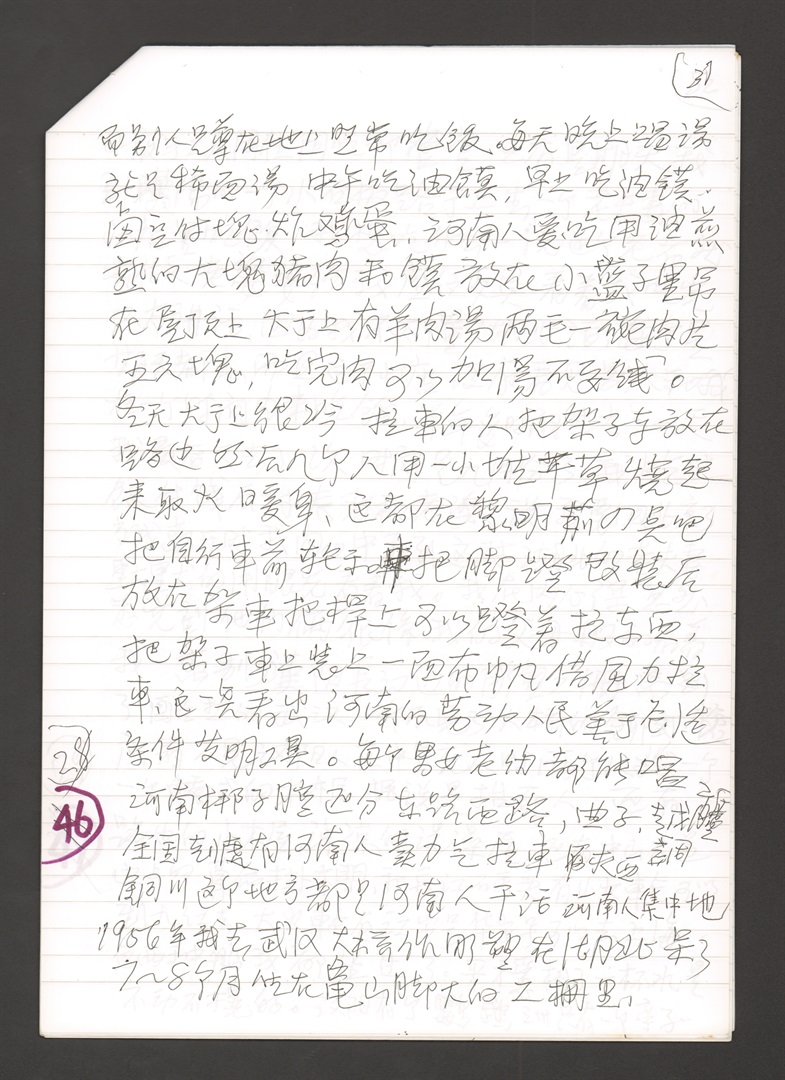 31
而别人只蹲在地上正常吃饭。每天晚上喝汤
就是稀面汤 中午吃油馍,早上吃油馍、
卤豆付块、炸鸡蛋,河南人爱吃用油煎
熟的大块猪肉和馍放在小蓝子里吊
在屋顶上 大于上有羊肉汤两毛一碗肉片
五六块,吃完肉可以加汤不要钱。
冬天大于上很冷 拉車的人把架子车放在
路边然后几个人用一小堆草烧起
来取火暖身、这都在黎明前の点吧
把自行車前轮子 把脚蹬改装后
放在架車把杆上可以蹬着拉东西,
把架子車上装上一面布巾凡借风力拉
車、这一点看出河南的劳动人民善于创造
条件发明工具。每个男女老幼都能唱
河南梆子腔还分东路西路,曲子,越调
全国到处有河南人卖力气拉車 陕西
銅川这个地方都是河南人干活 河南人集中地
1956年我去武汉大桥作雕塑在 呆了
7~8个月住在龟山脚大的工棚里、
28
46